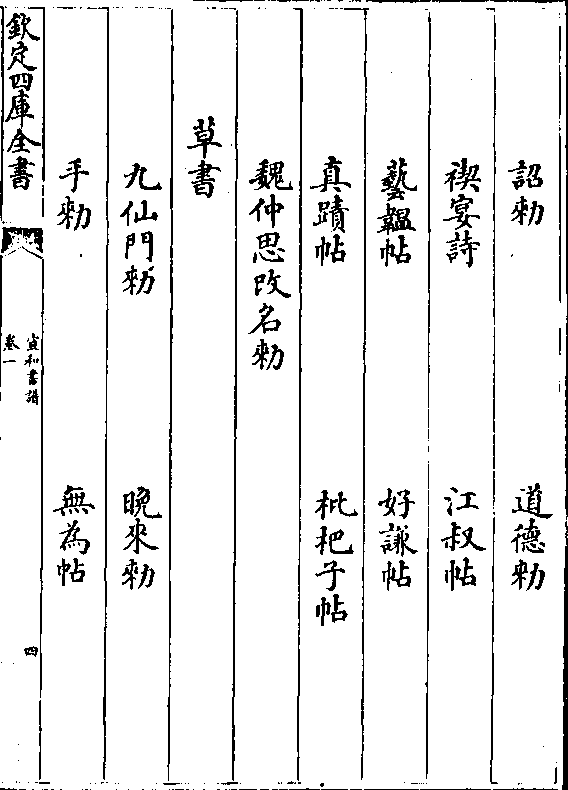 詔勅　道德勅
禊宴詩　江叔帖
藝韞帖　好謙帖
真蹟帖　枇杷子帖
魏仲思改名勅
草書
九仙門勅　晩來勅
手勅　無為帖
欽定四庫全書
宣和書譜
卷一
四